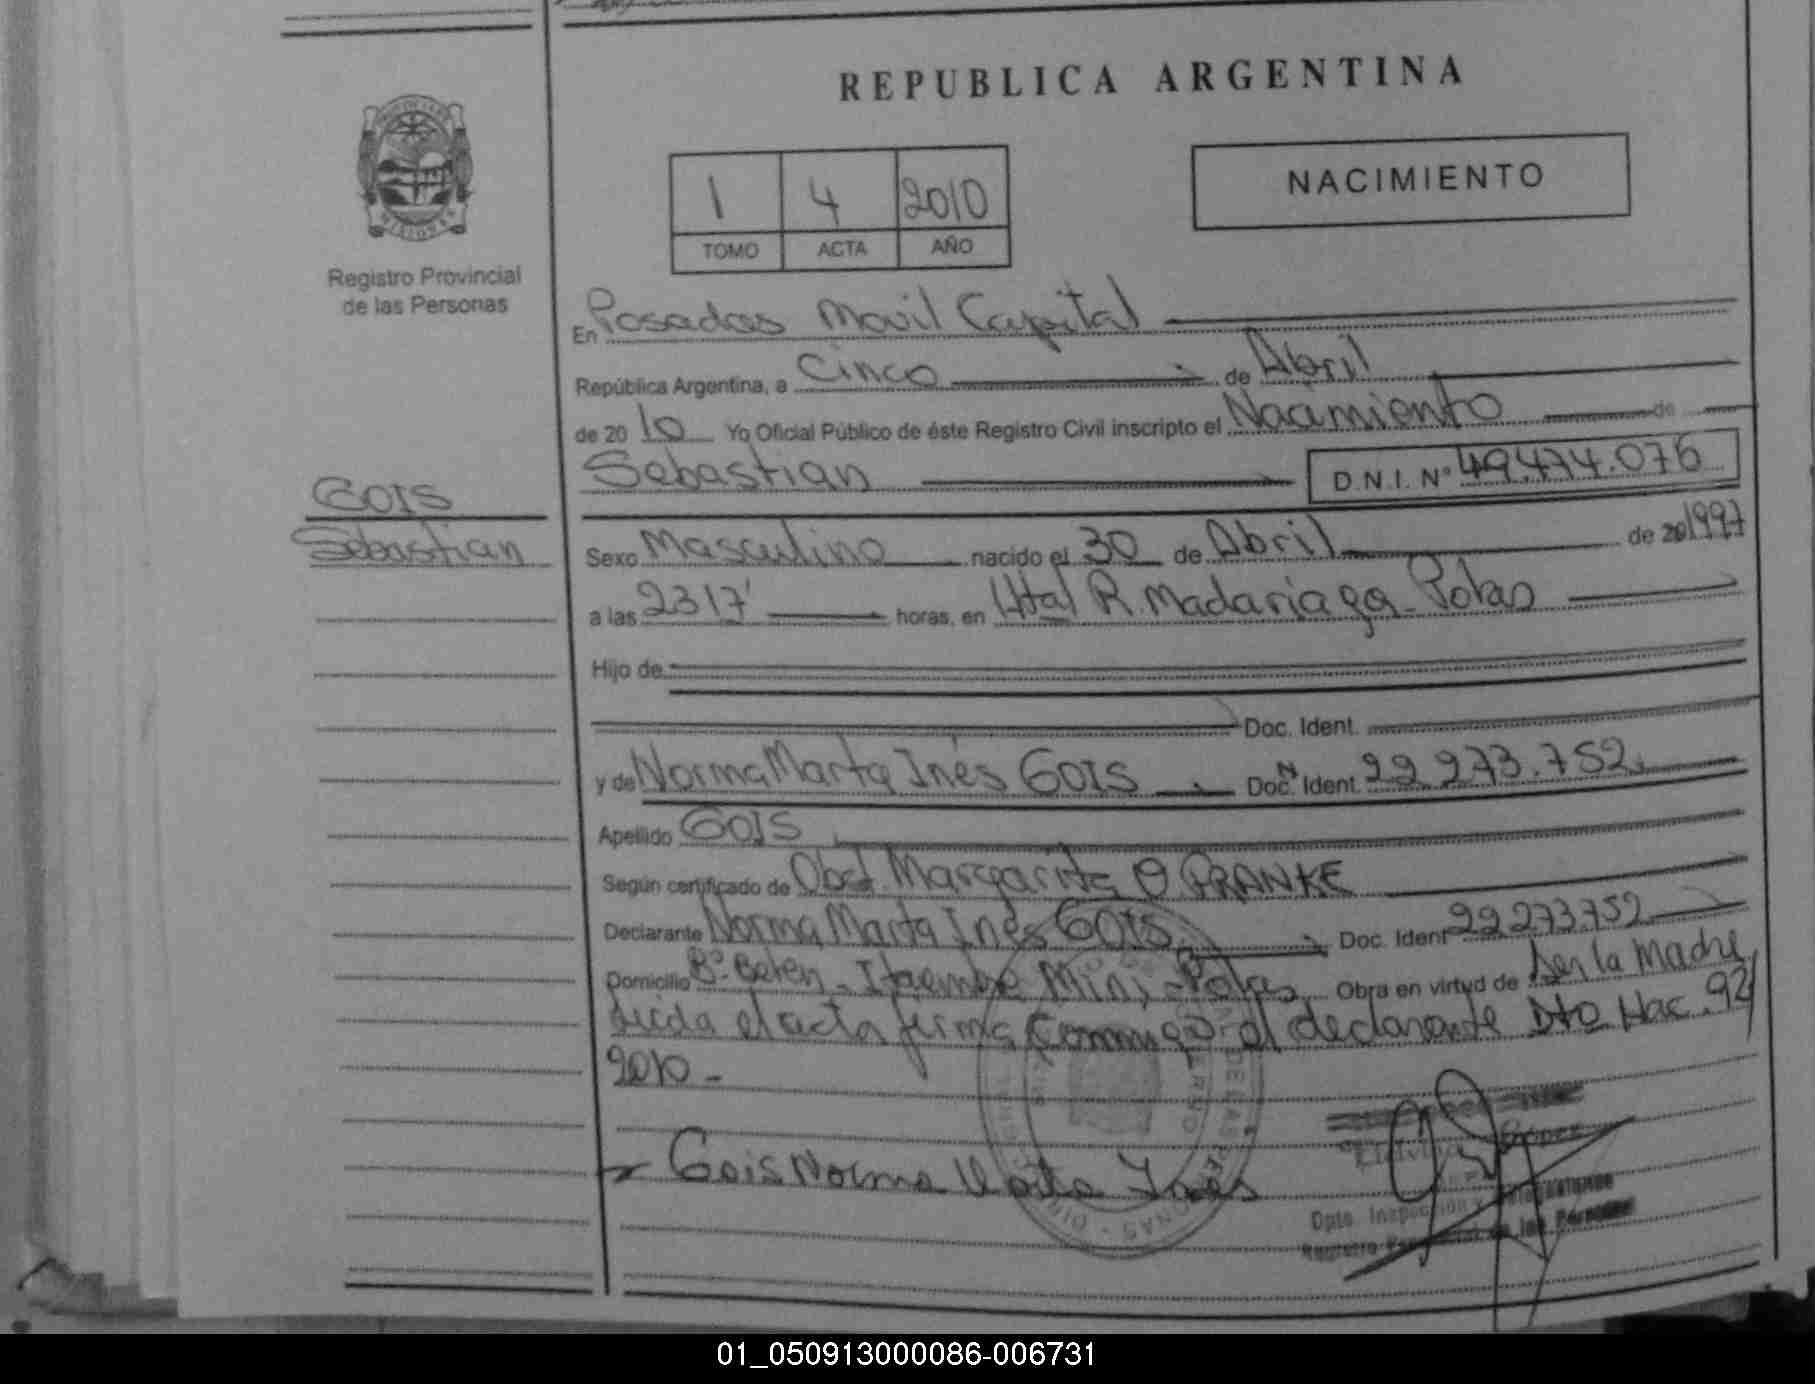 REPUBLICA ARGENTINA
NACIMIENTO
1 4 2010
TOMO ACTA AÑO
MISIONES
Registro Provincial
de las Personas
En Posadas Movil Capital
República Argentina, a Cinco de Abril
de 2010 Yo Oficial Público de éste Registro Civil inscripto el Nacimiento de
Sebastian D.N.I. Nº 49.474.076
GOIS
Sebastian
Sexo Masculino nacido el 30 de Abril de 20 1997
a las 2317' horas, en Htal R. Madariaga - Pdas
Hijo de
Doc. Ident.
y de Norma Marta Inés GOIS Doc. Ident. Nº 22 273.752
Apellido GOIS
Según certificado de Obst. Margarita O PRANKE
Declarante Norma Marta Inés GOIS Doc. Ident 22 273.752
Domicilio Bº Belen - Itaembe Mini - Pdas Obra en virtud de Ser la Madre
leida el acta firma conmigo el declarante Dto Hac. 92/
2010 -
Gois Norma Marta Ines
Dpto. Inspección y
Registro Provincial de las Personas
01_050913000086-006731